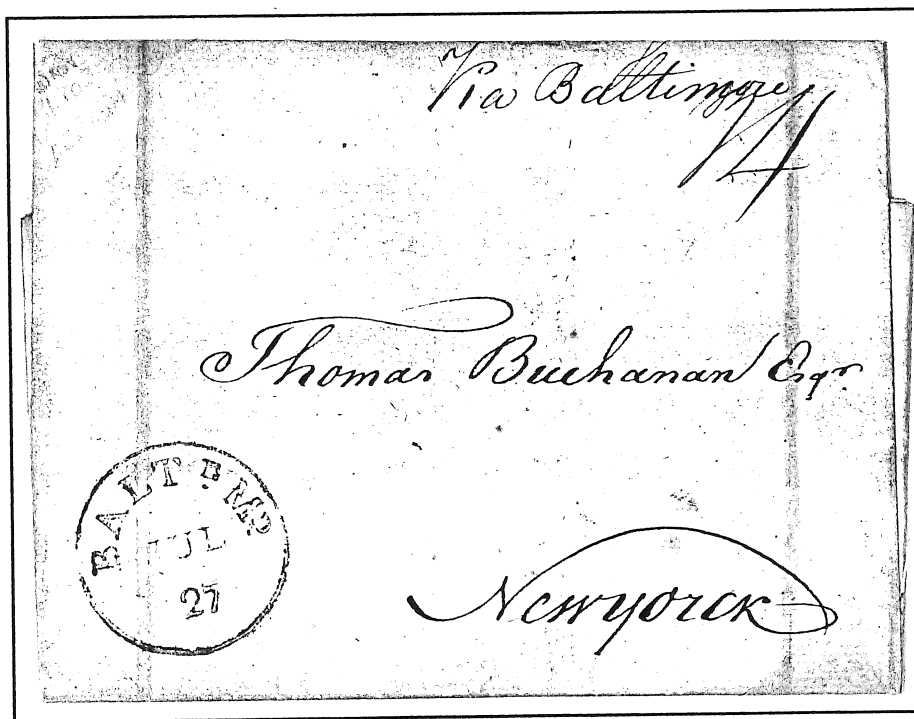 Via Baltimore
14
Thomas Buchanan Esqr.
BALTRE MD.
JUL
27
Newyorck